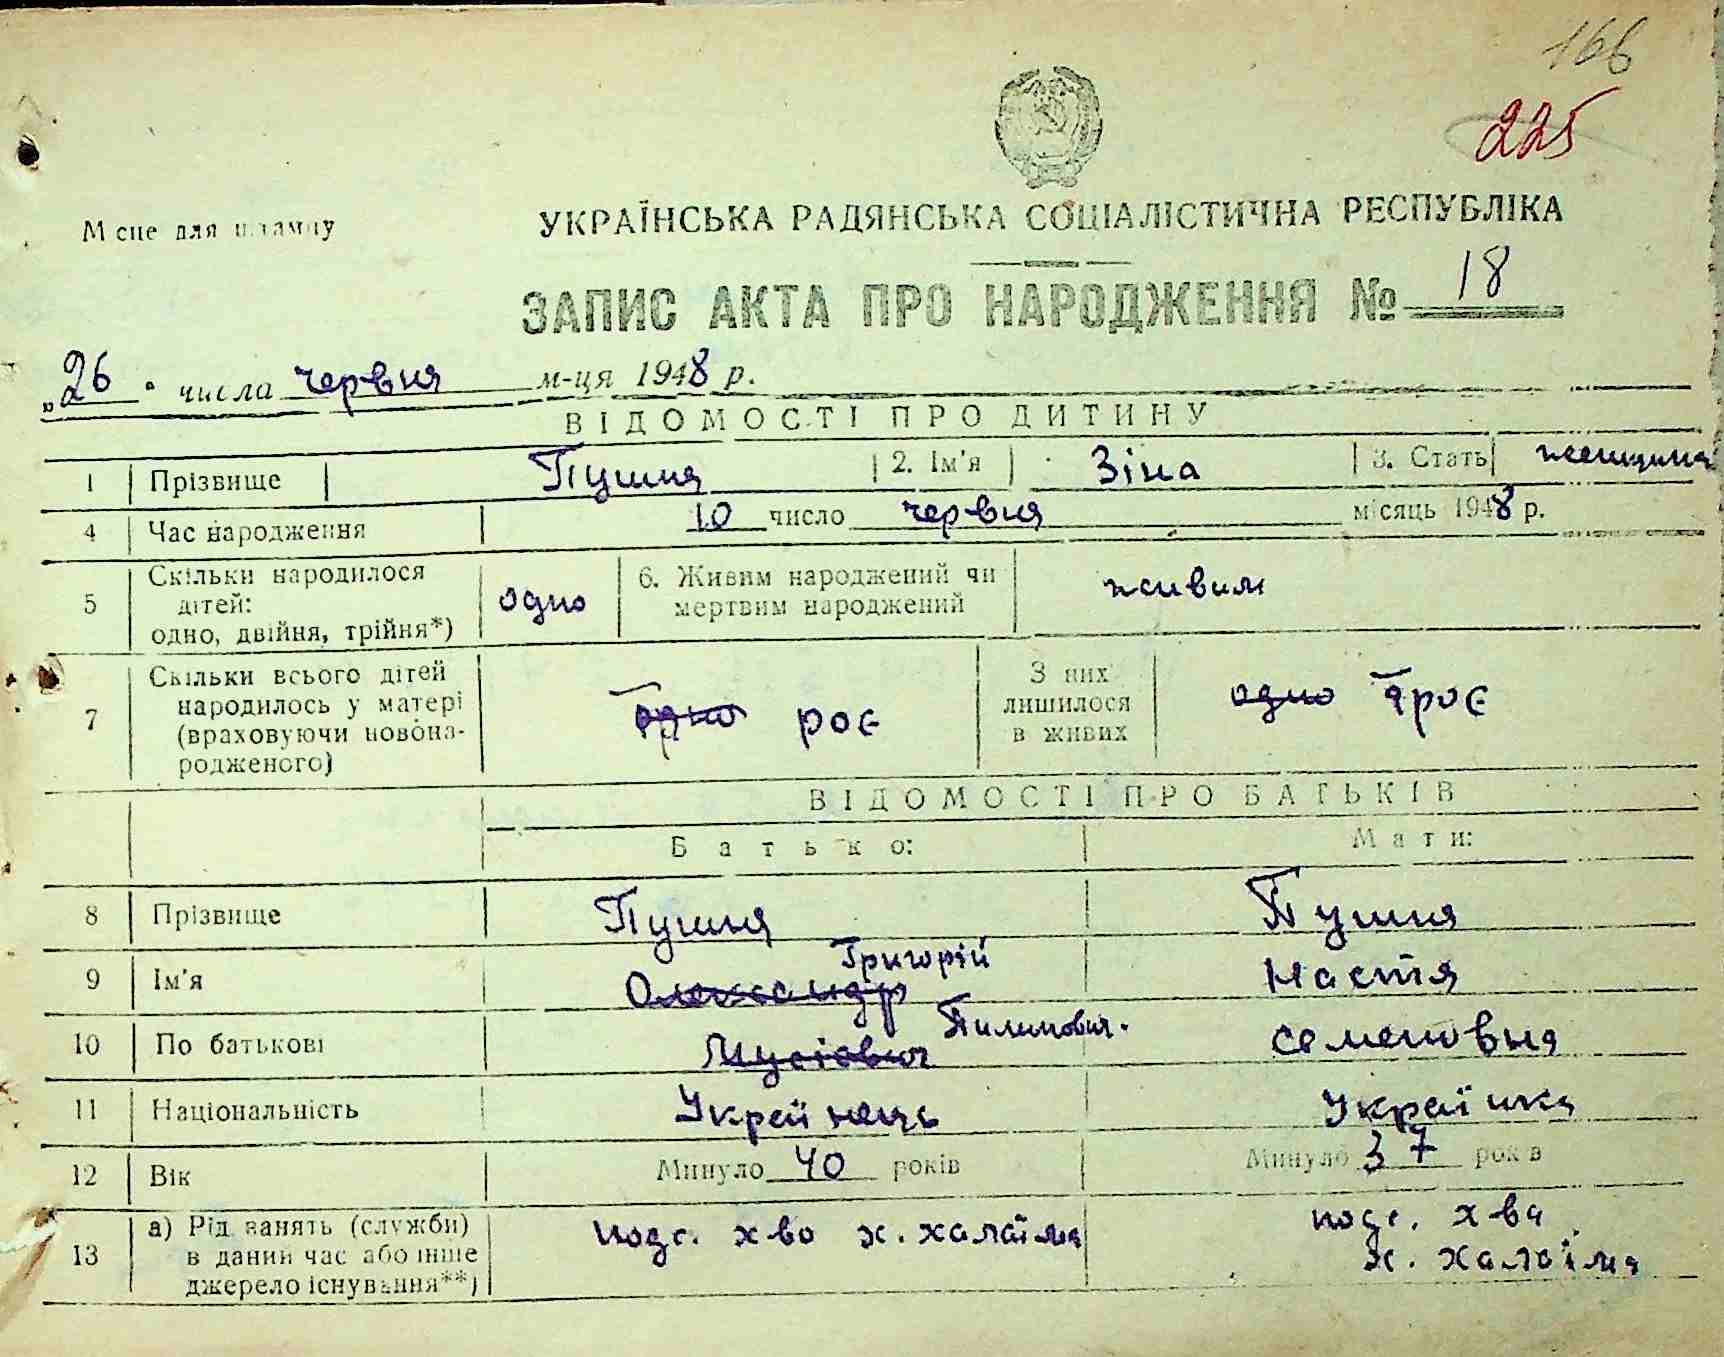 166
225
Місце для штампу
УКРАЇНСЬКА РАДЯНСЬКА СОЦІАЛІСТИЧНА РЕСПУБЛІКА
ЗАПИС АКТА ПРО НАРОДЖЕННЯ № 18
„26" числа червня м-ця 1948 р.
ВІДОМОСТІ ПРО ДИТИНУ
1 Прізвище Пушня 2. Ім'я Зіна 3. Стать женщина
4 Час народження 10 число червня місяць 1948 р.
5 Скільки народилося дітей: одно, двійня, трійня*) одно 6. Живим народжений чи мертвим народжений живим
7 Скільки всього дітей народилось у матері (враховуючи новонародженого) одно роє З них лишилося в живих одно троє
ВІДОМОСТІ ПРО БАТЬКІВ
Батько: Мати:
8 Прізвище Пушня Пушня
9 Ім'я Олександр Григорій Настя
10 По батькові Мусіович Пилипович. Семеновня
11 Національність Українець Українка
12 Вік Минуло 40 років Минуло 37 років
13 а) Рід занять (служби) в даний час або інше джерело існування**) подс. х-во х. халаїма подс. х-ва х. халаїма